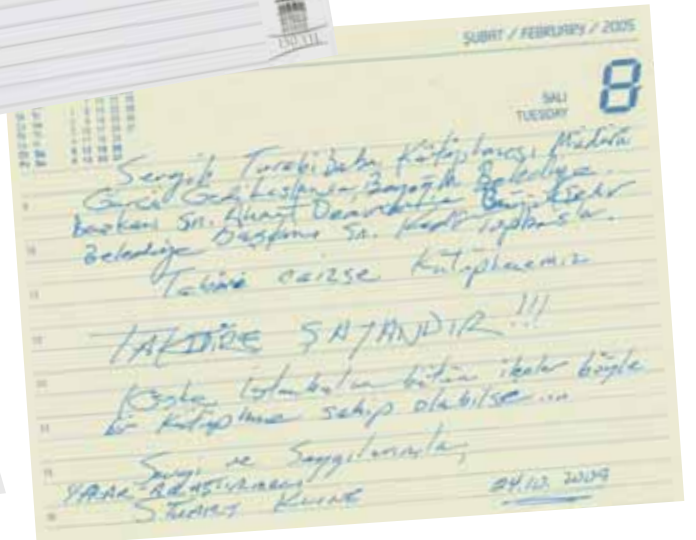 150. YIL
ŞUBAT / FEBRUARY / 2005
SALI
TUESDAY
8
Sevgili Turabibaba Kütüphanesi Müdürü
Beyoğlu Belediye
başkanı Sn. Ahmet Demircan Büyükşehir
Belediye başkanı Sn. Kadir Topbaş
Tabiri caizse kütüphanemiz
TAKDİRE ŞAYANDIR!!!
Keşke İstanbulun bütün ilçeler böyle
bir kütüphane sahip olabilse...
Sevgi ve Saygılarımla,
YAZAR-ARAŞTIRMACI
STUART KLINE
24.10.2009